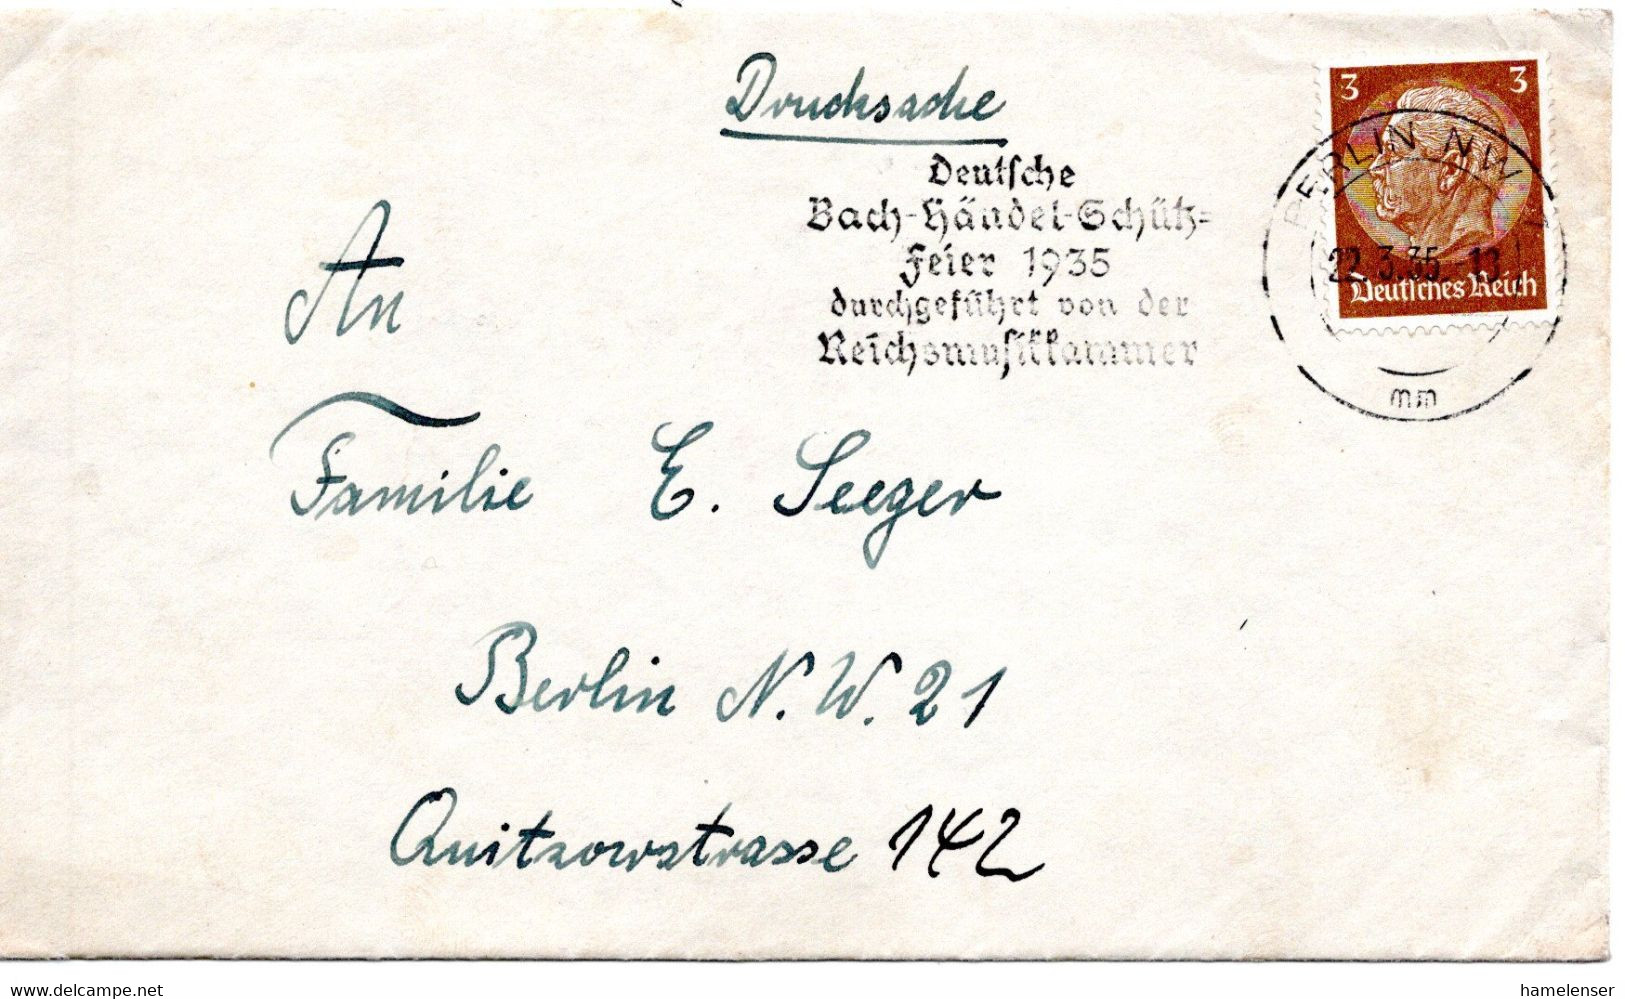 Drucksache
Deutsche
Bach-Händel-Schütz-
Feier 1935
durchgeführt von der
Reichsmusikkammer
3 3
Deutsches Reich
BERLIN NW 7
22.3.35. 13
mm
An
Familie E. Seeger
Berlin N.W. 21
Quitzowstrasse 142
www.delcampe.net
hamelenser